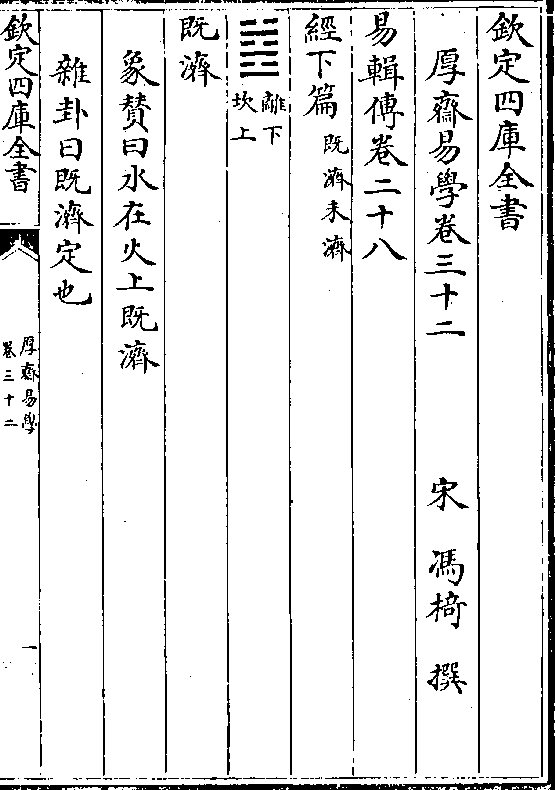 欽定四庫全書
厚齋易學卷三十二
宋 馮椅 撰
易輯傳卷二十八
經下篇 既濟未濟
䷾ 離下
坎上
既濟
象贊曰水在火上既濟
雜卦曰既濟定也
欽定四庫全書
厚齋易學
卷三十二
一